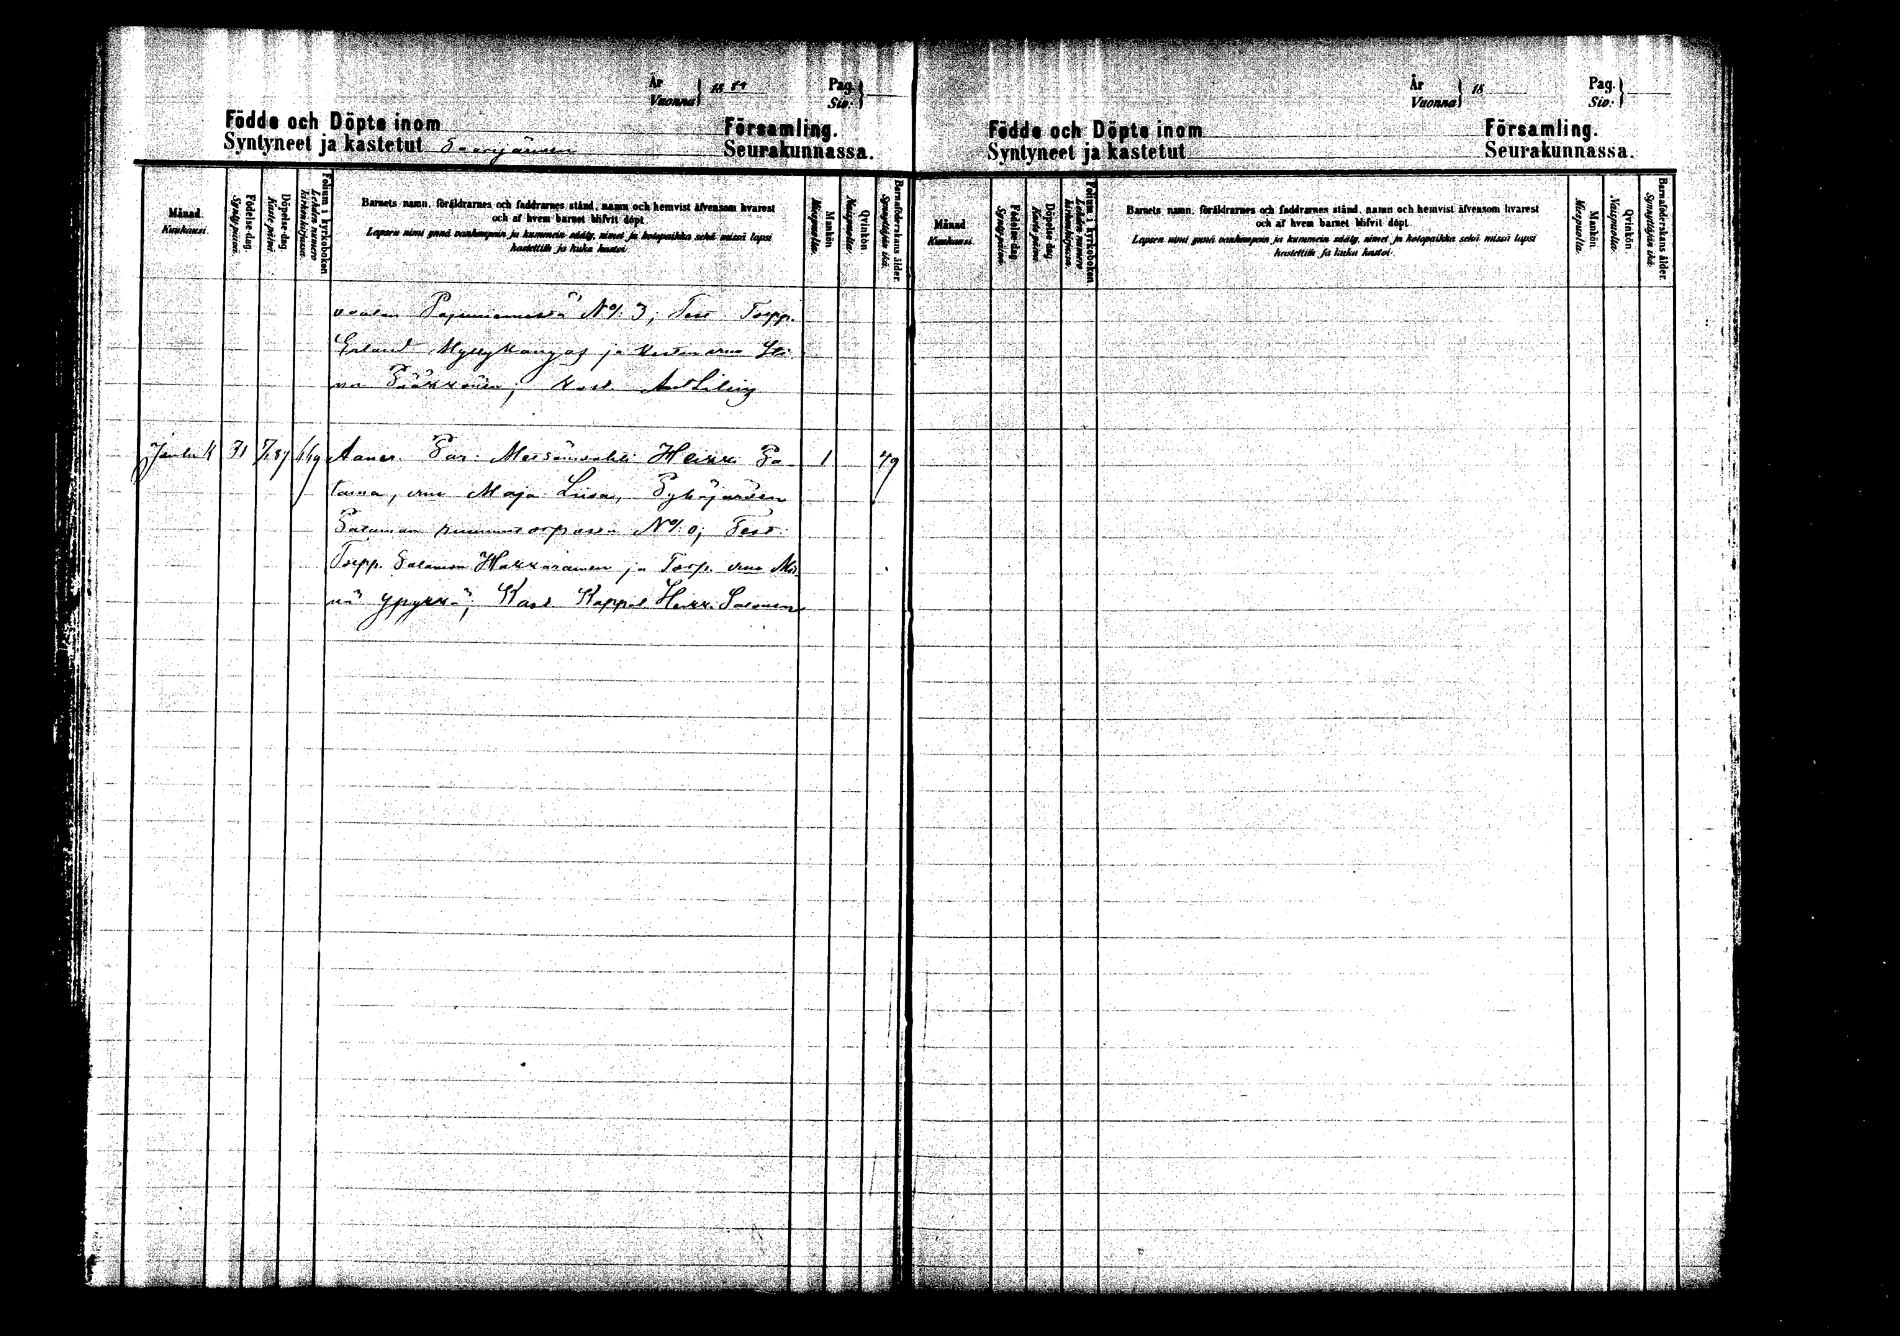 År
Vuonna } 18
Pag.
Siv. }
Födde och Döpte inom Församling.
Syntyneet ja kastetut Saarijärven Seurakunnassa.
Månad. Kuukausi.
Födelse-dag. Syntypäivä.
Döpelse-dag. Kaste päivä.
Folium i kyrkoboken Lehden numero kirkonkirjassa.
Barnets namn, föräldrarnes och faddrarnes stånd, namn och hemvist äfvensom hvarest
och af hvem barnet blifvit döpt.
Lapsen nimi ynnä vanhempain ja kummein sääty, nimet ja kotopaikka sekä missä lapsi
kastettiin ja kuka kastoi.
Mankön. Miespuolta.
Qvinkön. Naispuolta.
Barnaföderskans ålder. Synnyttäjän ikä.
N:o 3; Test Torpp.
Erland Myllykangas ja vmo Sti-
na Pääkkönen; kast.
JouluK 31 669 Aaner. Heikki Sa- 1 49
tama, vmo Maja Liisa, Pyhäjärven
Sataman N:o 0; Test:
Torpp. Salomon Hakkarainen ja Torp. vmo Mii-
na Ypyykä; Kast Kappal. Heikki Salonen
År
Vuonna } 18
Pag.
Siv. }
Födde och Döpte inom Församling.
Syntyneet ja kastetut Seurakunnassa.
Månad Kuukausi.
Födelse-dag. Syntypäivä.
Döpelse-dag. Kaste päivä.
Folium i kyrkoboken Lehden numero kirkonkirjassa.
Barnets namn, föräldrarnes och faddrarnes stånd, namn och hemvist äfvensom hvarest
och af hvem barnet blifvit döpt.
Lapsen nimi ynnä vanhempain ja kummein sääty, nimet ja kotopaikka sekä missä lapsi
kastettiin ja kuka kastoi.
Mankön. Miespuolta.
Qvinkön. Naispuolta.
Barnaföderskans ålder. Synnyttäjän ikä.